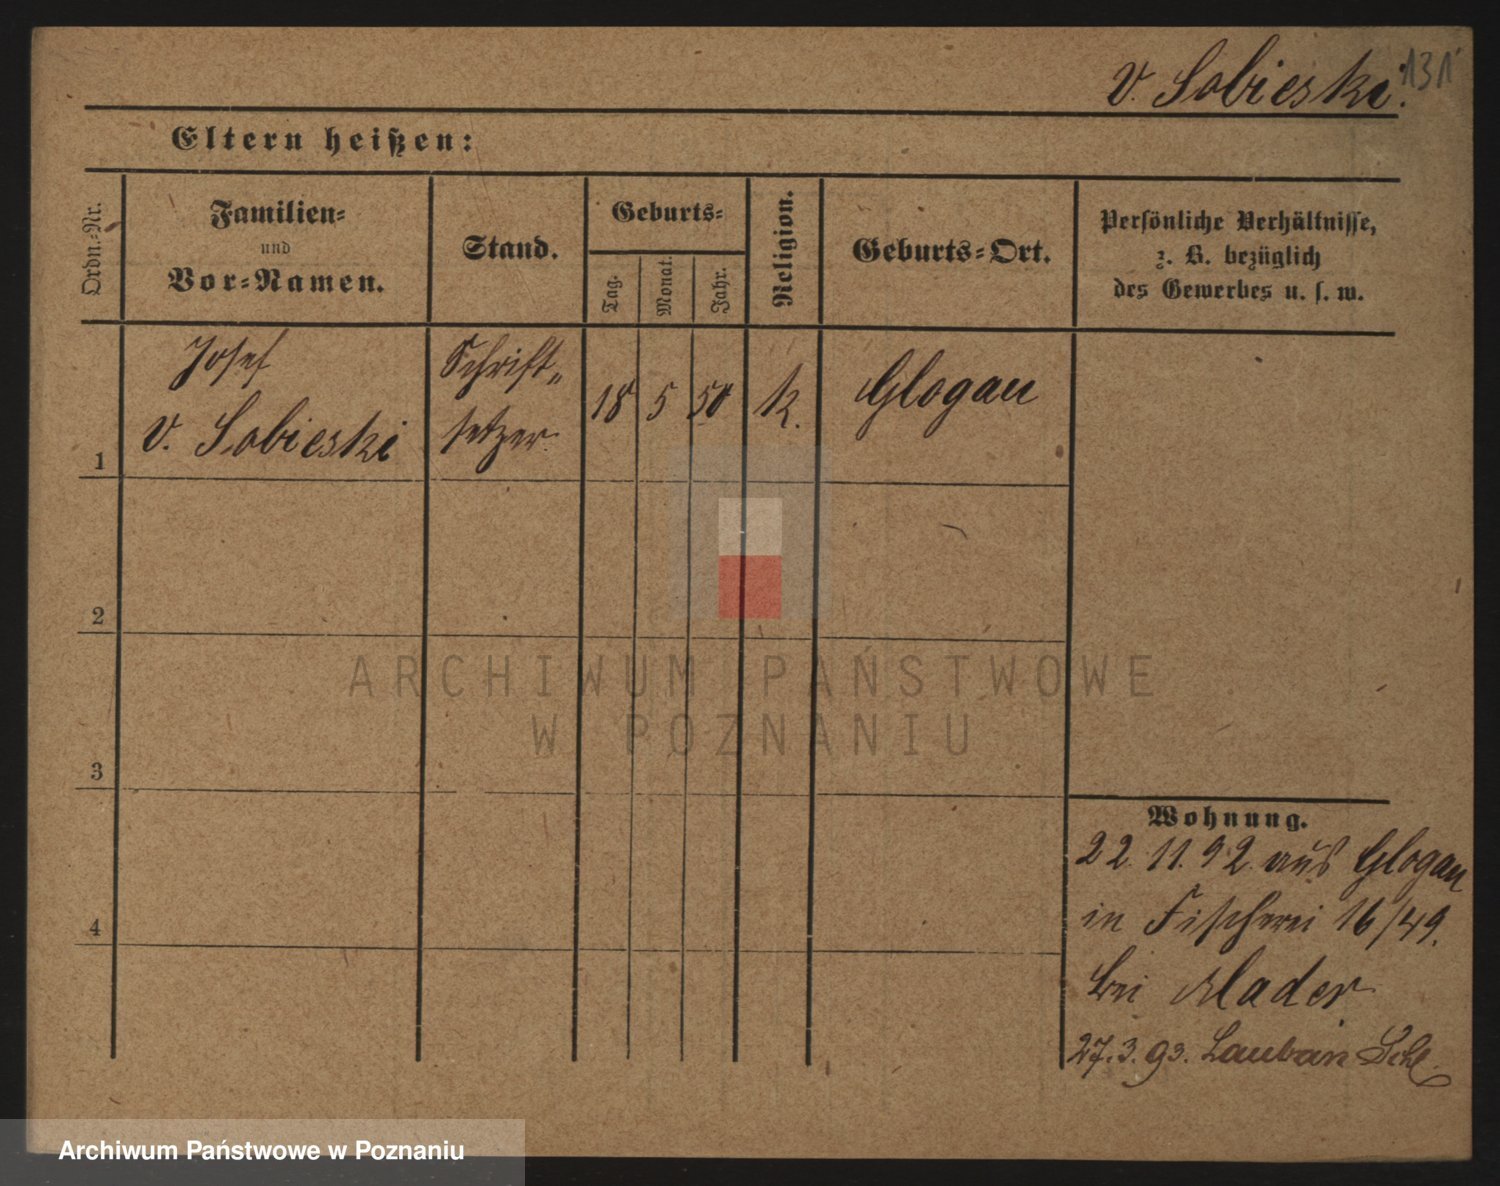 v. Sobieski.
131
Eltern heißen:
Ordn.-Nr.
Familien-
und
Vor-Namen.
Stand.
Geburts-
Tag.
Monat.
Jahr.
Religion.
Geburts-Ort.
Persönliche Verhältnisse,
z. B. bezüglich
des Gewerbes u. s. w.
1
Josef
v. Sobieski
Schrift„
setzer
18
5
50
k.
Glogau
2
3
4
ARCHIWUM PAŃSTWOWE
W POZNANIU
Wohnung.
22. 11. 92. aus Glogau
in Fischerei 16/49.
bei Mader
27.3.93. Lauban Schl.
Archiwum Państwowe w Poznaniu